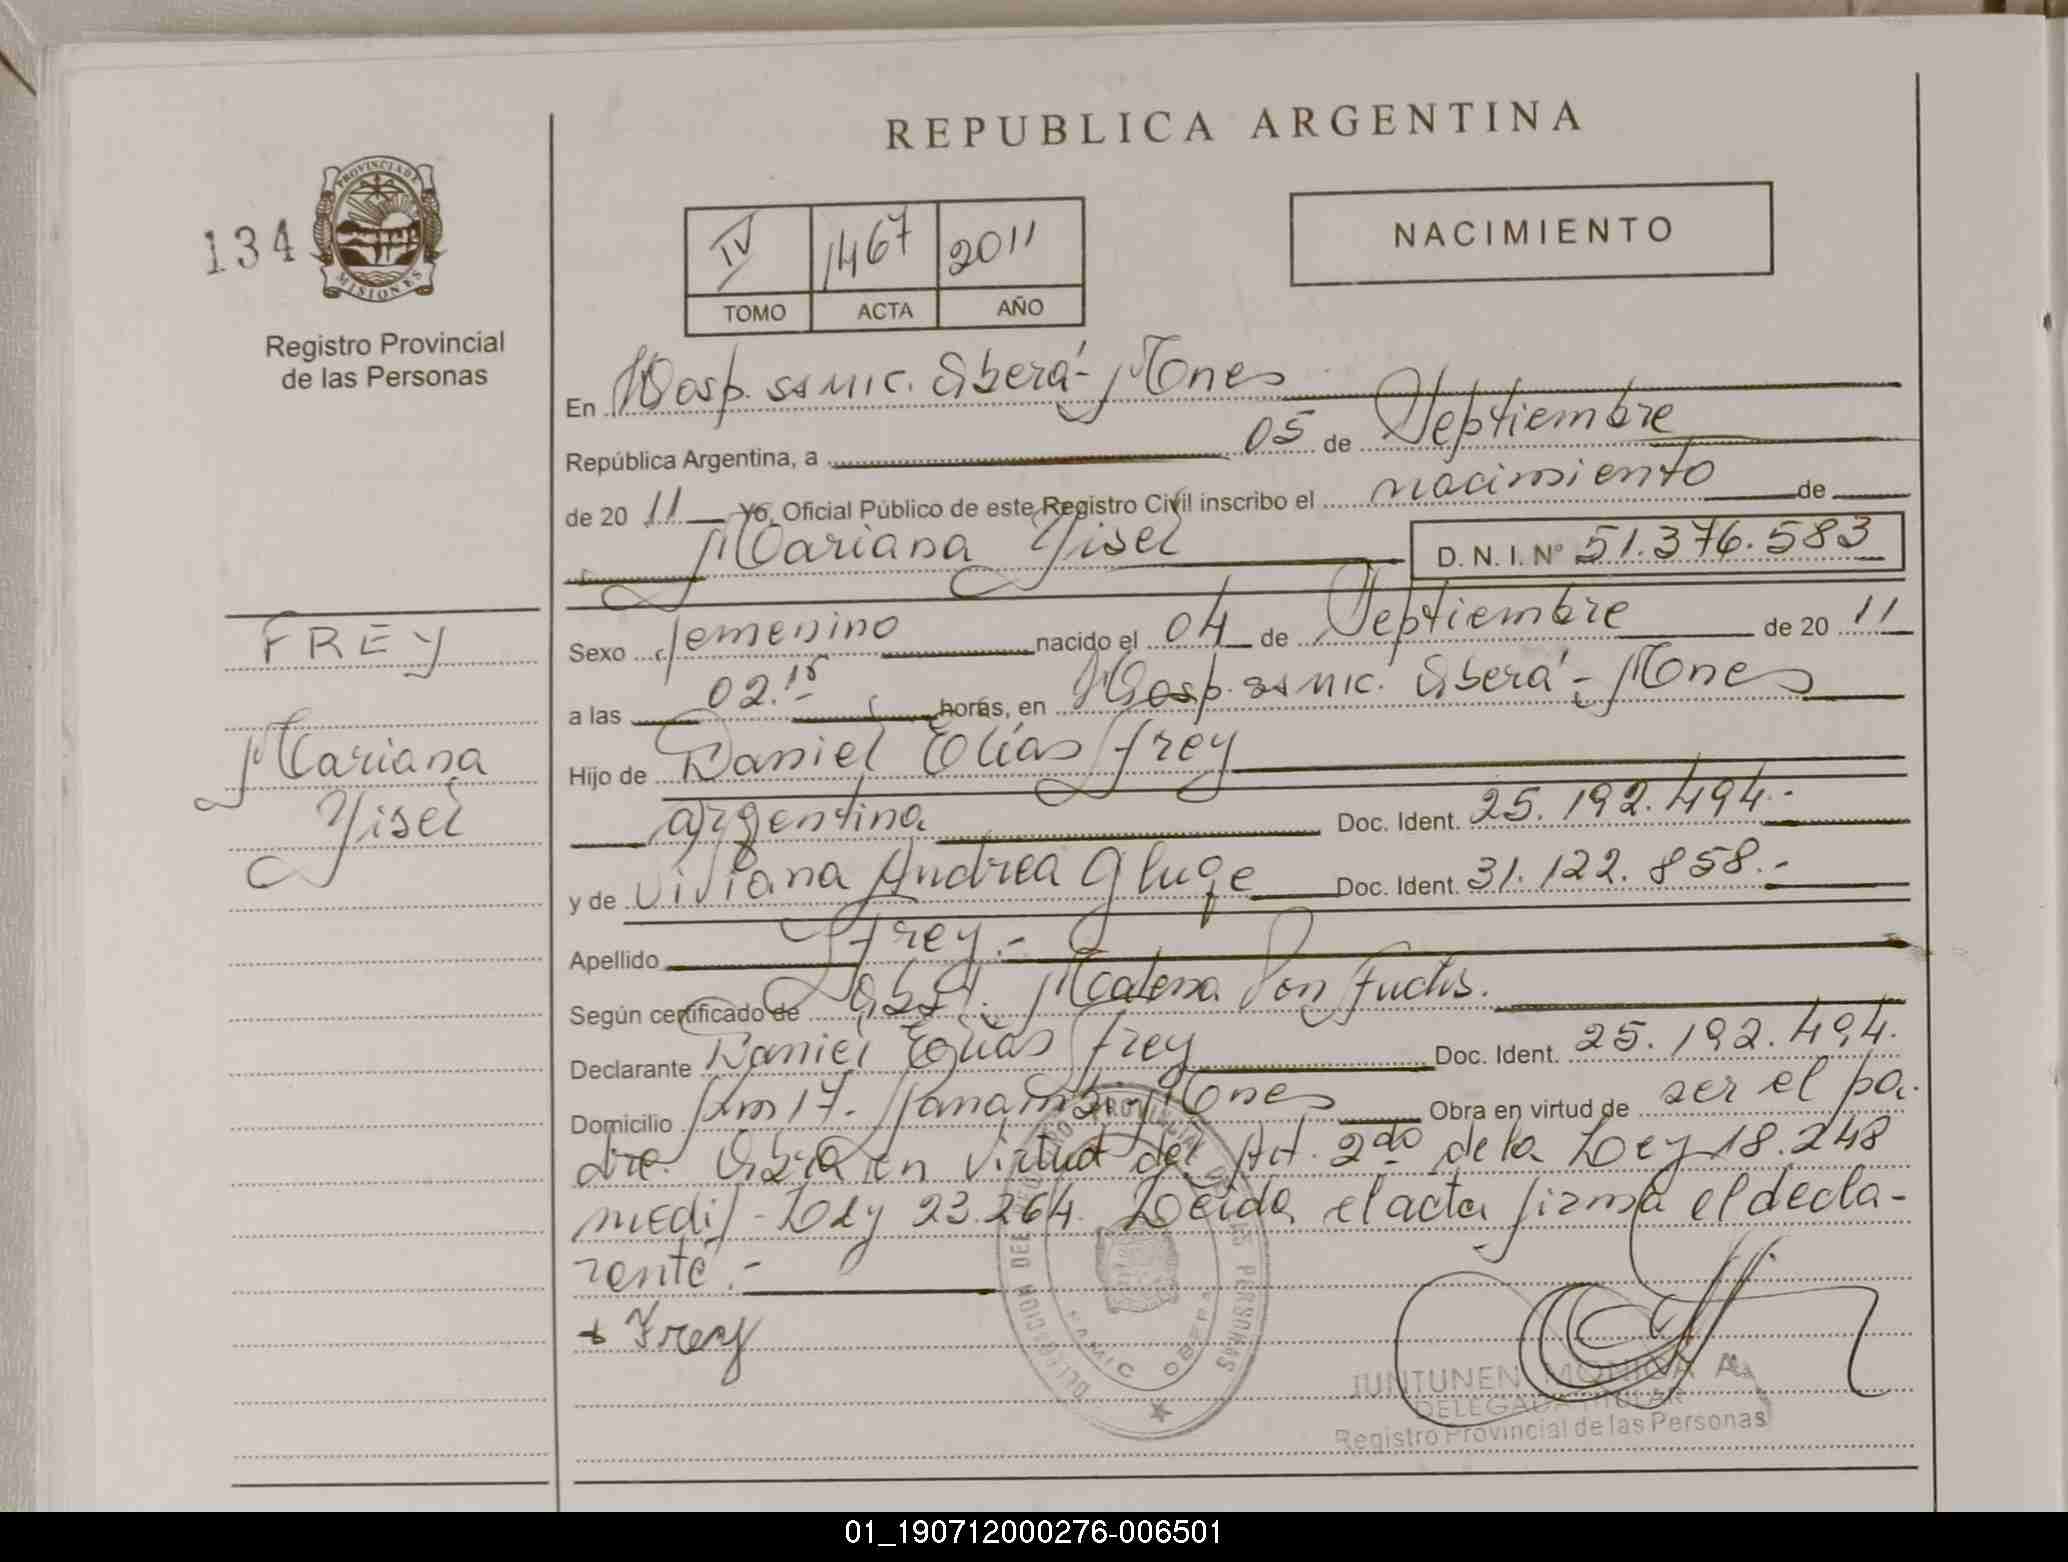 REPUBLICA ARGENTINA
134
PROVINCIA DE
MISIONES
Registro Provincial
de las Personas
IV 1467 2011
TOMO ACTA AÑO
NACIMIENTO
En Hosp. SAMIC. Oberá - Mnes
República Argentina, a 05 de Septiembre
de 20 11 Yo, Oficial Público de este Registro Civil inscribo el nacimiento de
Mariana Yisel D. N. I. Nº 51.376.583
FREY
Mariana
Yisel
Sexo femenino nacido el 04 de Septiembre de 20 11
a las 02.15 horas, en Hosp. SAMIC. Oberá - Mnes
Hijo de Daniel Elías Frey
argentina Doc. Ident. 25.192.494.-
y de Viviana Andrea Gluge Doc. Ident. 31.122.858.-
Apellido Frey.-
Según certificado de Obst. Malena Von Fuchs.
Declarante Daniel Elías Frey Doc. Ident. 25.192.494.
Domicilio Km 17. Panambí - Mnes Obra en virtud de ser el pa-
dre. Obra en virtud del Art. 2do de la Ley 18.248
modif - Ley 23.264. Leída el acta firma el decla-
rante.-
+ Frey
DELEGACION DEL REGISTRO PROVINCIAL DE LAS PERSONAS
SAMIC OBERA
IUNTUNEN MONICA A.
DELEGADA TITULAR
Registro Provincial de las Personas
01_190712000276-006501